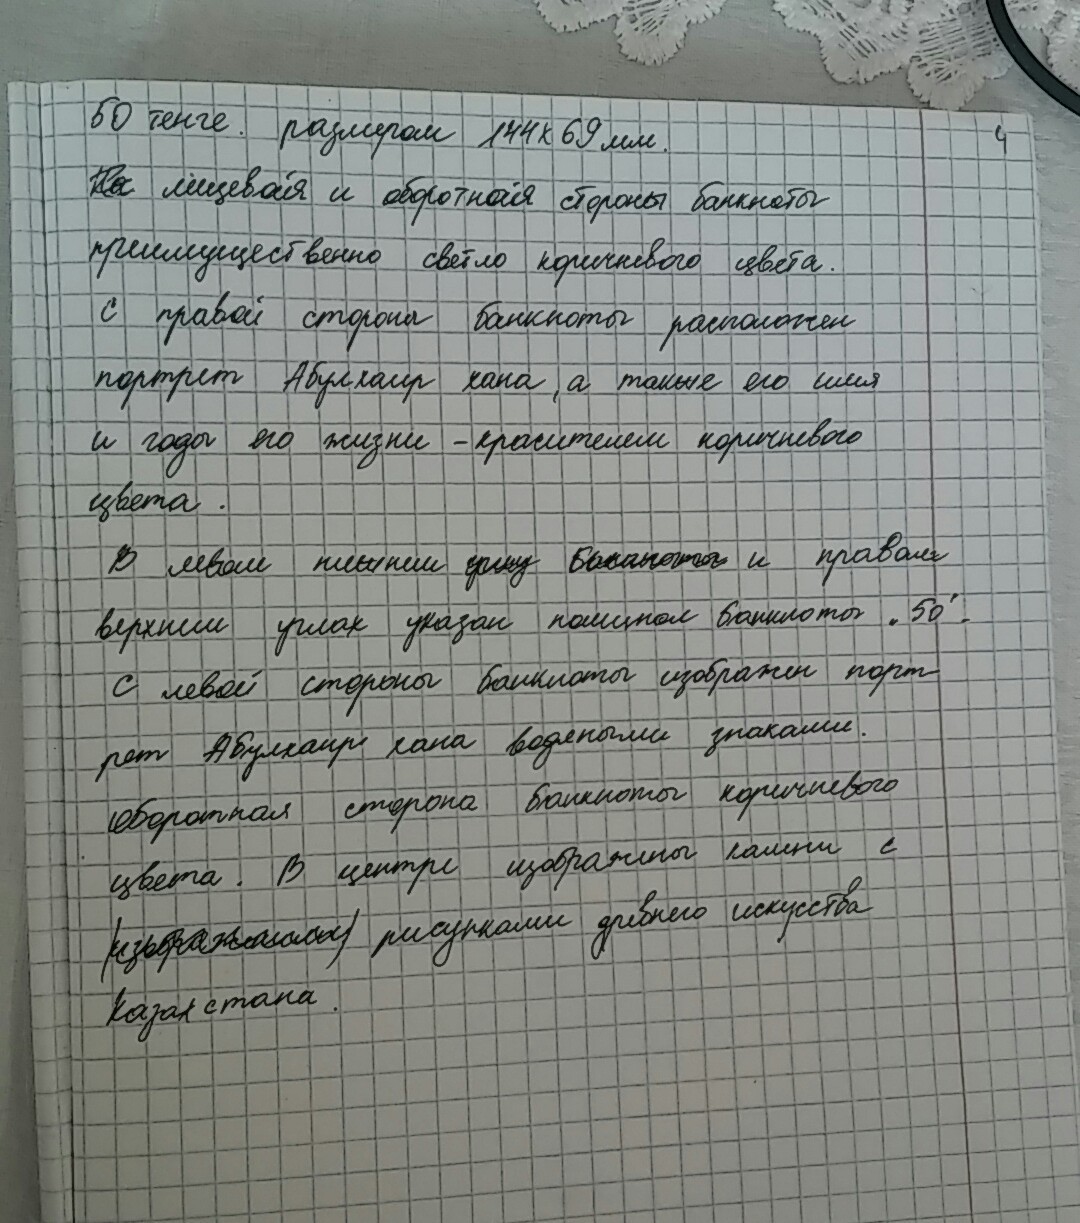 50 тенге. размером 144х69 мм.
4
лицевая и оборотная стороны банкноты
преимущественно светло коричневого цвета.
С правой стороны банкноты расположен
портрет Абулхаир хана, а также его имя
и годы его жизни - красителем коричневого
цвета.
В левом нижнем и правом
верхнем углах указан номинал банкноты "50".
С левой стороны банкноты изображен порт
рет Абулхаир хана водяными знаками.
оборотная сторона банкноты коричневого
цвета. В центре изображены камни с
рисунками древнего искусства
Казахстана.